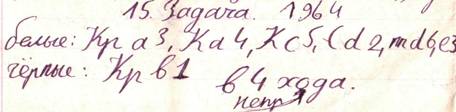 15. Задача. 1964
белые: Кр а3, Ка4, Кс5, Cd2, пd6, e3
чёрные: Кр в1
в 4 хода.